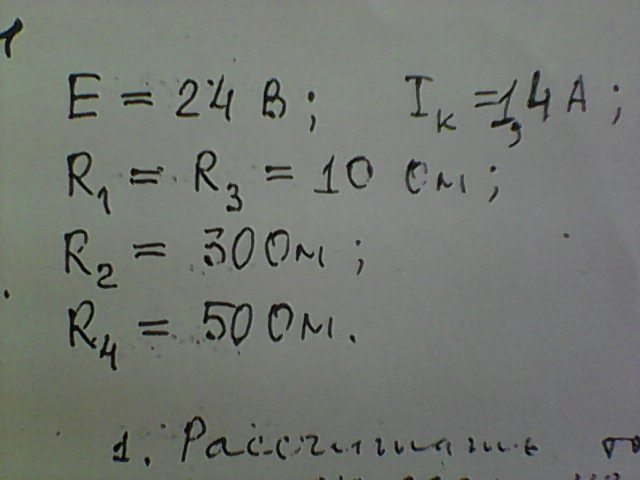 E = 24 В; Iк = 1,4 А;
R1 = R3 = 10 Ом;
R2 = 30 Ом;
R4 = 50 Ом.
1. Рассчитать